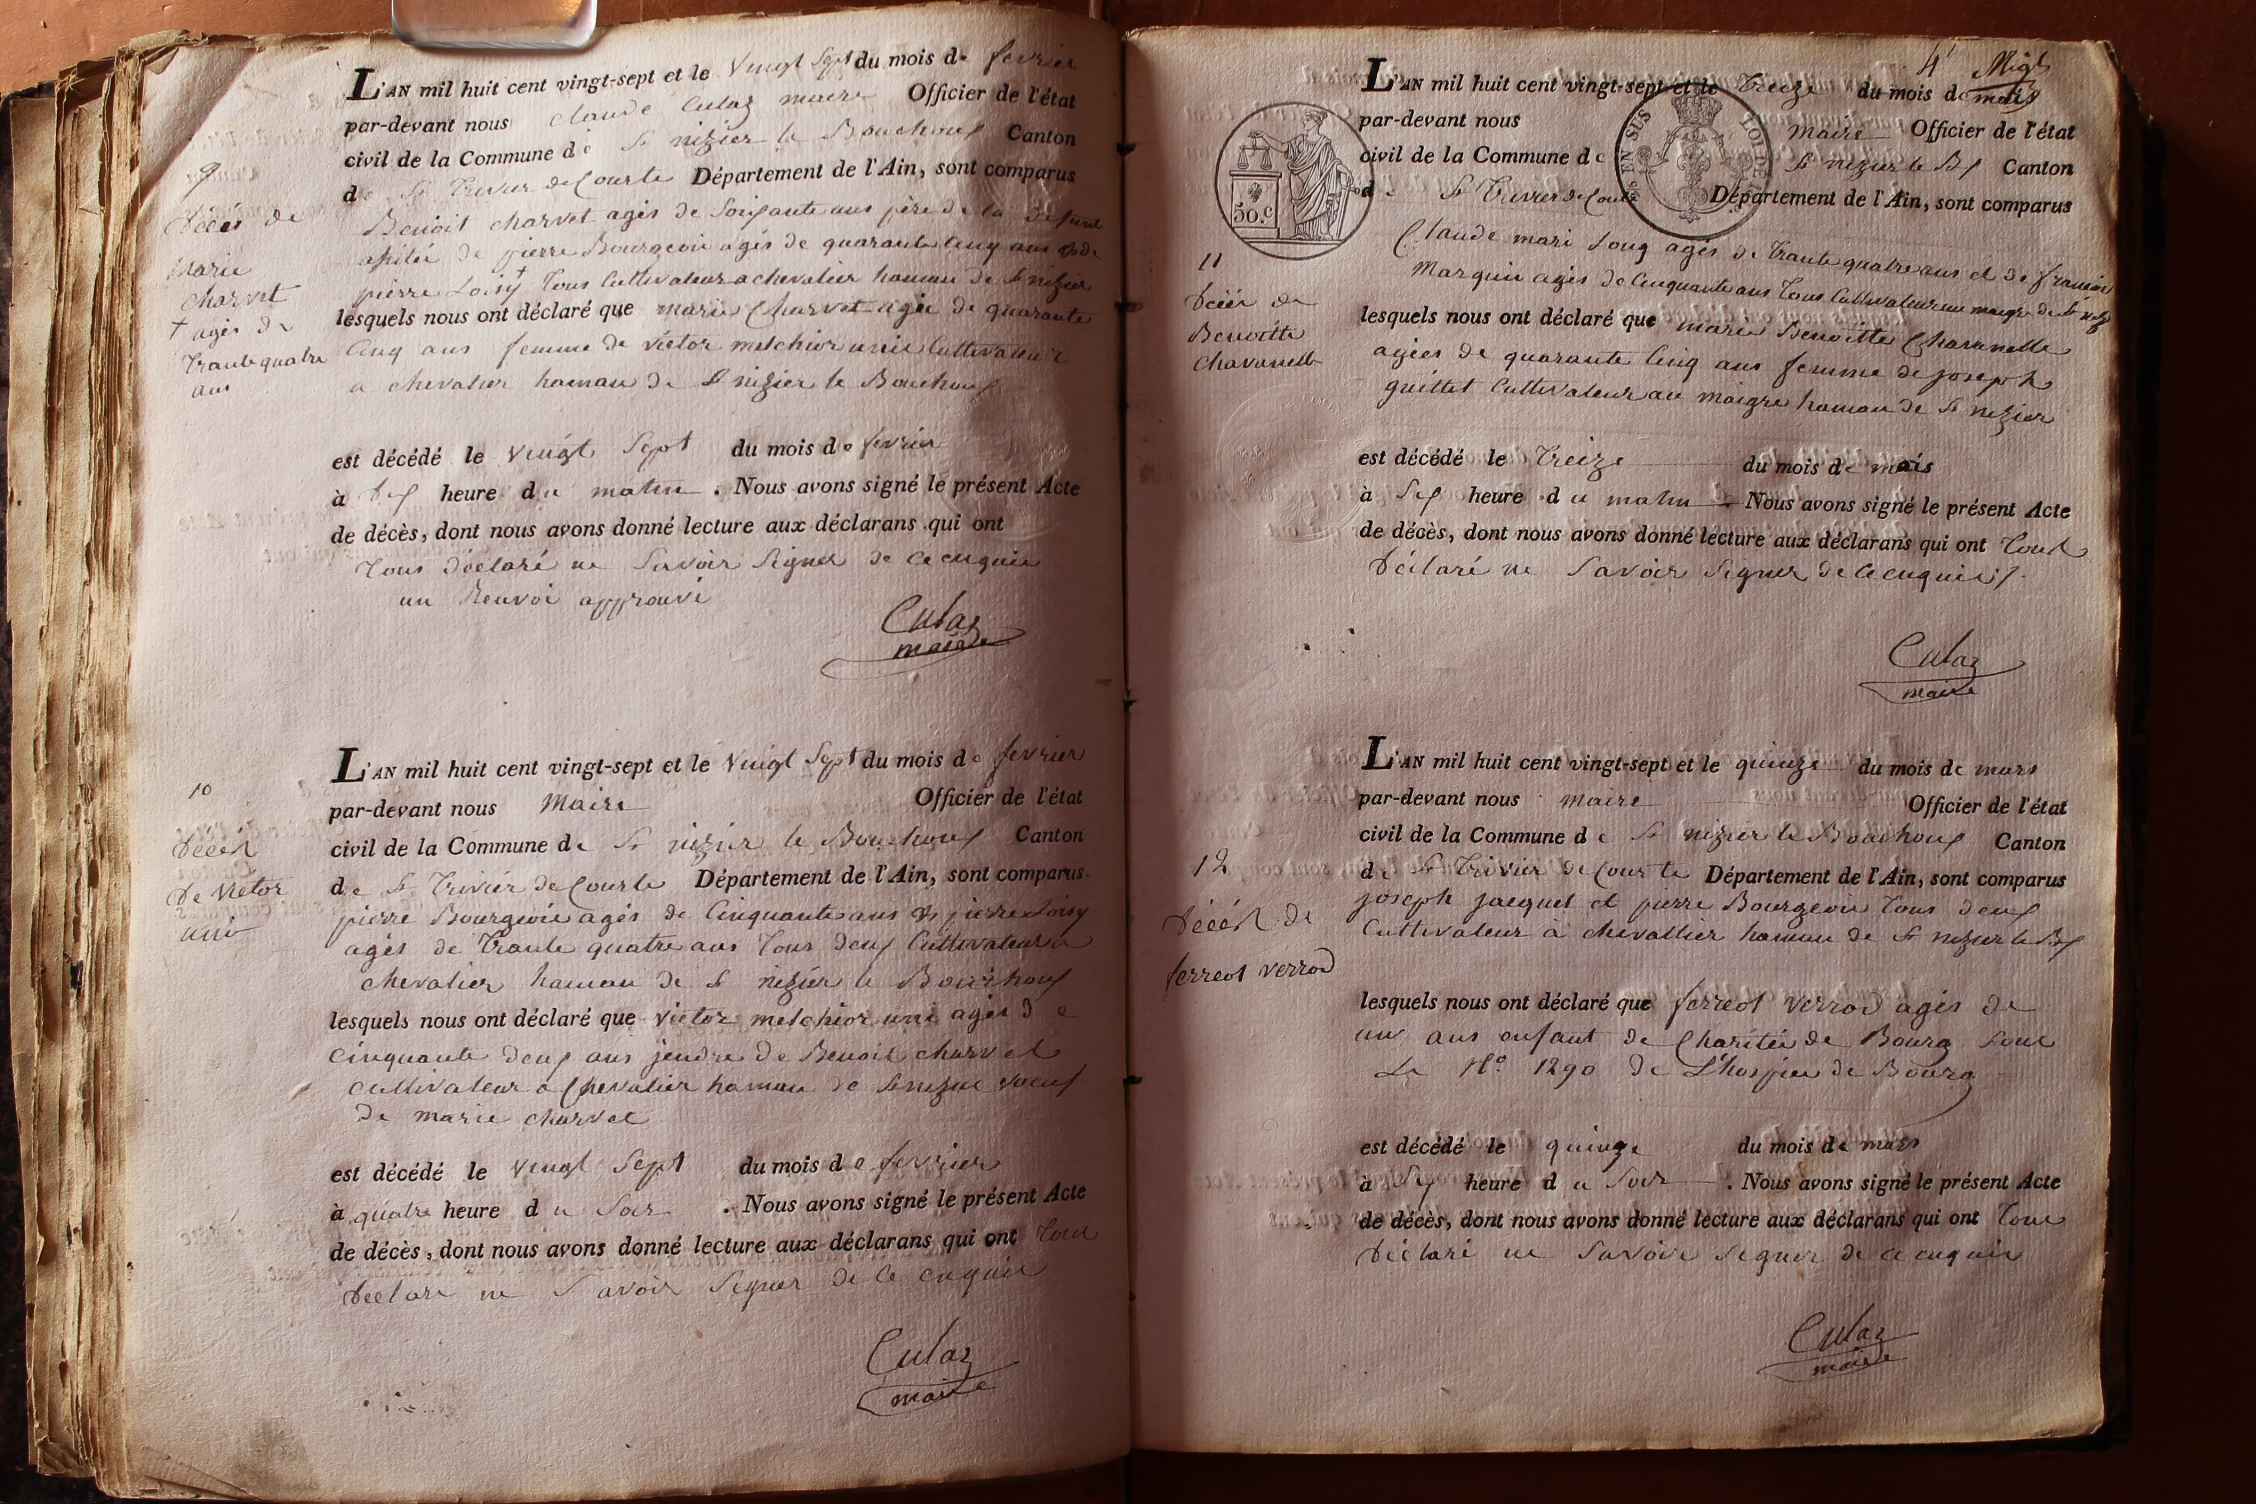 L'AN mil huit cent vingt-sept et le vingt sept du mois de fevrier
par-devant nous claude Culaz maire Officier de l'état
civil de la Commune de St nizier le Bouchoux Canton
de St Trivier de Courte Département de l'Ain, sont comparus
Benoit charvet agés de Soixante ans père de la defunte
de pierre Bourgeois agés de quarante cinq ans & de
pierre Loisy + Tous Cultivateur a chevalier hamau de St nizier
lesquels nous ont déclaré que marie Charvet agée de quarante
Cinq ans femme de victor melchior unie Cultivateur
a chevalier hamau de St nizier le Bouchoux
est décédé le vingt Sept du mois de fevrier
à dix heure du matin . Nous avons signé le présent Acte
de décès, dont nous avons donné lecture aux déclarans qui ont
Tous déclaré ne Savoir Signer de ce enquis
un Renvoi approuvé
Culaz
maire
9
Décés de
Marie
charvet
+ agés de
Trante quatre
ans
L'AN mil huit cent vingt-sept et le vingt Sept du mois de fevrier
par-devant nous Maire Officier de l'état
civil de la Commune de St nizier le Bouchoux Canton
de St Trivier de Courte Département de l'Ain, sont comparus
pierre Bourgeois agés de Cinquante ans & pierre Loisy
agés de Trante quatre ans Tous deux Cultivateur a
chevalier hamau de St nizier le Bouchoux
lesquels nous ont déclaré que victor melchior uni agés de
Cinquante deux ans jendre de Benoit charvet
Cultivateur a Chevalier hamau de St nizier voeuf
de marie charvet
est décédé le vingt Sept du mois de fevrier
à quatre heure du Soir . Nous avons signé le présent Acte
de décès, dont nous avons donné lecture aux déclarans qui ont Tous
Déclaré ne Savoir Signer de ce enquis
Culaz
maire
10
Décés
De Victor
uni
4e
L'AN mil huit cent vingt-sept et le Treize du mois de mars
par-devant nous maire Officier de l'état
civil de la Commune de St nizier le Bx Canton
de St Trivier de Courte Département de l'Ain, sont comparus
Claude mari Loug agés de Trante quatre ans et de francois
Marquis agés de Cinquante ans Tous Cultivateur au maigre de St nizier
lesquels nous ont déclaré que marie Benoitte Chavanelle
agées de quarante Cinq ans femme de joseph
guittet Cultivateur au maigre hamau de St nizier
est décédé le Treize du mois de mars
à Six heure du matin . Nous avons signé le présent Acte
de décès, dont nous avons donné lecture aux déclarans qui ont Tous
Déclaré ne Savoir Signer de ce enquis
Culaz
maire
50.c
EN SUS
LOI DE
11
Décés de
Benoitte
Chavanelle
L'AN mil huit cent vingt-sept et le quinze du mois de mars
par-devant nous maire Officier de l'état
civil de la Commune de St nizier le Bouchoux Canton
de St Trivier de Courte Département de l'Ain, sont comparus
joseph jacquet et pierre Bourgeois Tous deux
Cultivateur à chevallier hamau de St nizier le Bx
lesquels nous ont déclaré que ferreol verrod agés de
un ans enfant de Charitée de Bourg Sous
Le No 1290 de L'hospice de Bourg
est décédé le quinze du mois de mars
à Six heure du Soir . Nous avons signé le présent Acte
de décès, dont nous avons donné lecture aux déclarans qui ont Tous
Déclaré ne Savoir Signer de ce enquis
Culaz
maire
12
Décés de
ferreol verrod